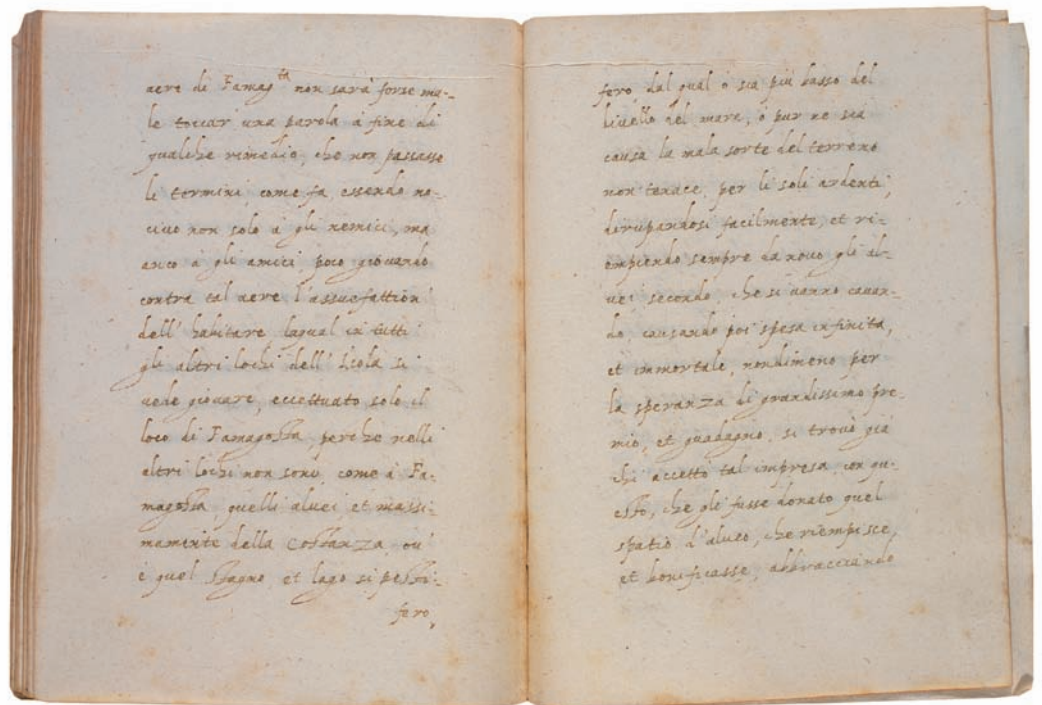 aere di Famag.ta non sarà forse ma-
le toccar una parola à fine di
qualche rimedio, che non passasse
li termini, come fa, essendo no-
civo non solo à gli nemici, ma
anco à gli amici, poco giovando
contra tal aere l'assuefattion
dell' habitare, laqual in tutti
gli altri lochi dell' Isola si
vede giovare, eccettuato solo il
loco di Famagosta, perche nelli
altri lochi non sono, come à Fa-
magosta quelli alvei et massi-
mamente della Costanza, ov'
è quel stagno, et lago si pesti-
fero,
fero, dal qual ò sia più basso del
livello del mare, ò pur ne sia
causa la mala sorte del terreno
non tenace, per li soli ardenti,
dirupandosi facilmente, et ri-
empiendo sempre da novo gli al-
vei secondo, che si vanno cavan-
do, causando poi spesa infinita,
et immortale, nondimeno per
la speranza di grandissimo pre-
mio, et guadagno, si trovò già
chi accettò tal impresa, con qu-
esto, che gli fusse donato quel
spatio d'alveo, che riempisce,
et bonificasse, abbracciando